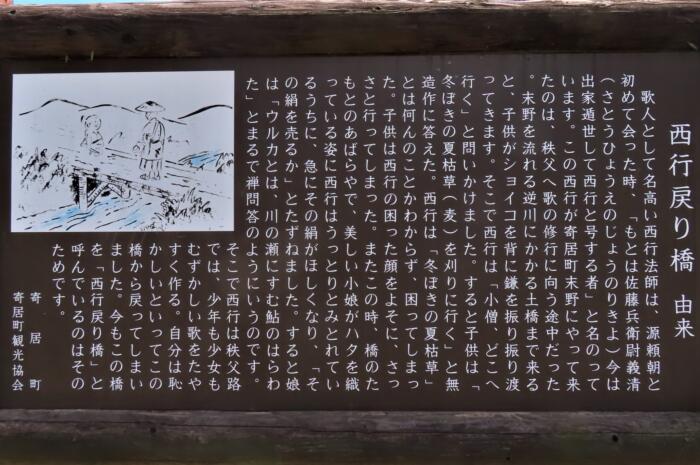 西行戻り橋 由来
歌人として名高い西行法師は、源頼朝と
初めて会った時、「もとは佐藤兵衛尉義清
(さとうひょうえのじょうのりきよ)今は
出家遁世して西行と号する者」と名のって
います。この西行が寄居町末野にやって来
たのは、秩父へ歌の修行に向う途中だった
。末野を流れる逆川にかかる土橋まで来る
と、子供がショイコを背に鎌を振り振り渡
ってきます。そこで西行は「小僧、どこへ
行く」と問いかけました。すると子供は「
冬ぼきの夏枯草(麦)を刈りに行く」と無
造作に答えた。西行は「冬ぼきの夏枯草」
とは何んのことかわからず、困ってしまっ
た。子供は西行の困った顔をよそに、さっ
さと行ってしまった。またこの時、橋のた
もとのあばらやで、美しい小娘がハタを織
っている姿に西行はうっとりとみとれてい
るうちに、急にその絹がほしくなり、「そ
の絹を売るか」とたずねました。すると娘
は「ウルカとは、川の瀬にすむ鮎のはらわ
た」とまるで禅問答のようにいうのです。
そこで西行は秩父路
では、少年も少女も
むずかしい歌をたや
すく作る。自分は恥
かしいといってこの
橋から戻ってしまい
ました。今もこの橋
を「西行戻り橋」と
呼んでいるのはその
ためです。
寄居町
寄居町観光協会